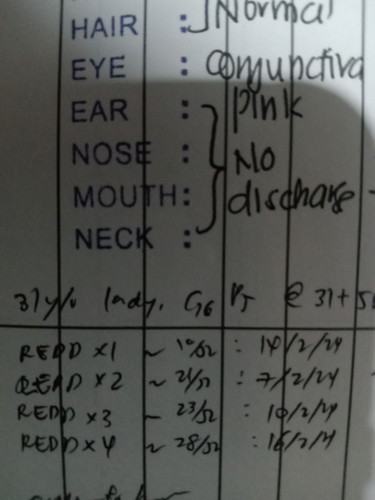 HAIR : Normal
EYE : Conjunctiva
EAR : Pink
NOSE : No
MOUTH: discharge
NECK :
31 y/o lady, G6 P5 @ 31+5
REDD x1 ~ /52 : /2/24
REDD x2 ~ 21/52 : 7/2/24
REDD x3 ~ 23/52 : 10/2/24
REDD x4 ~ 28/52 : 16/2/